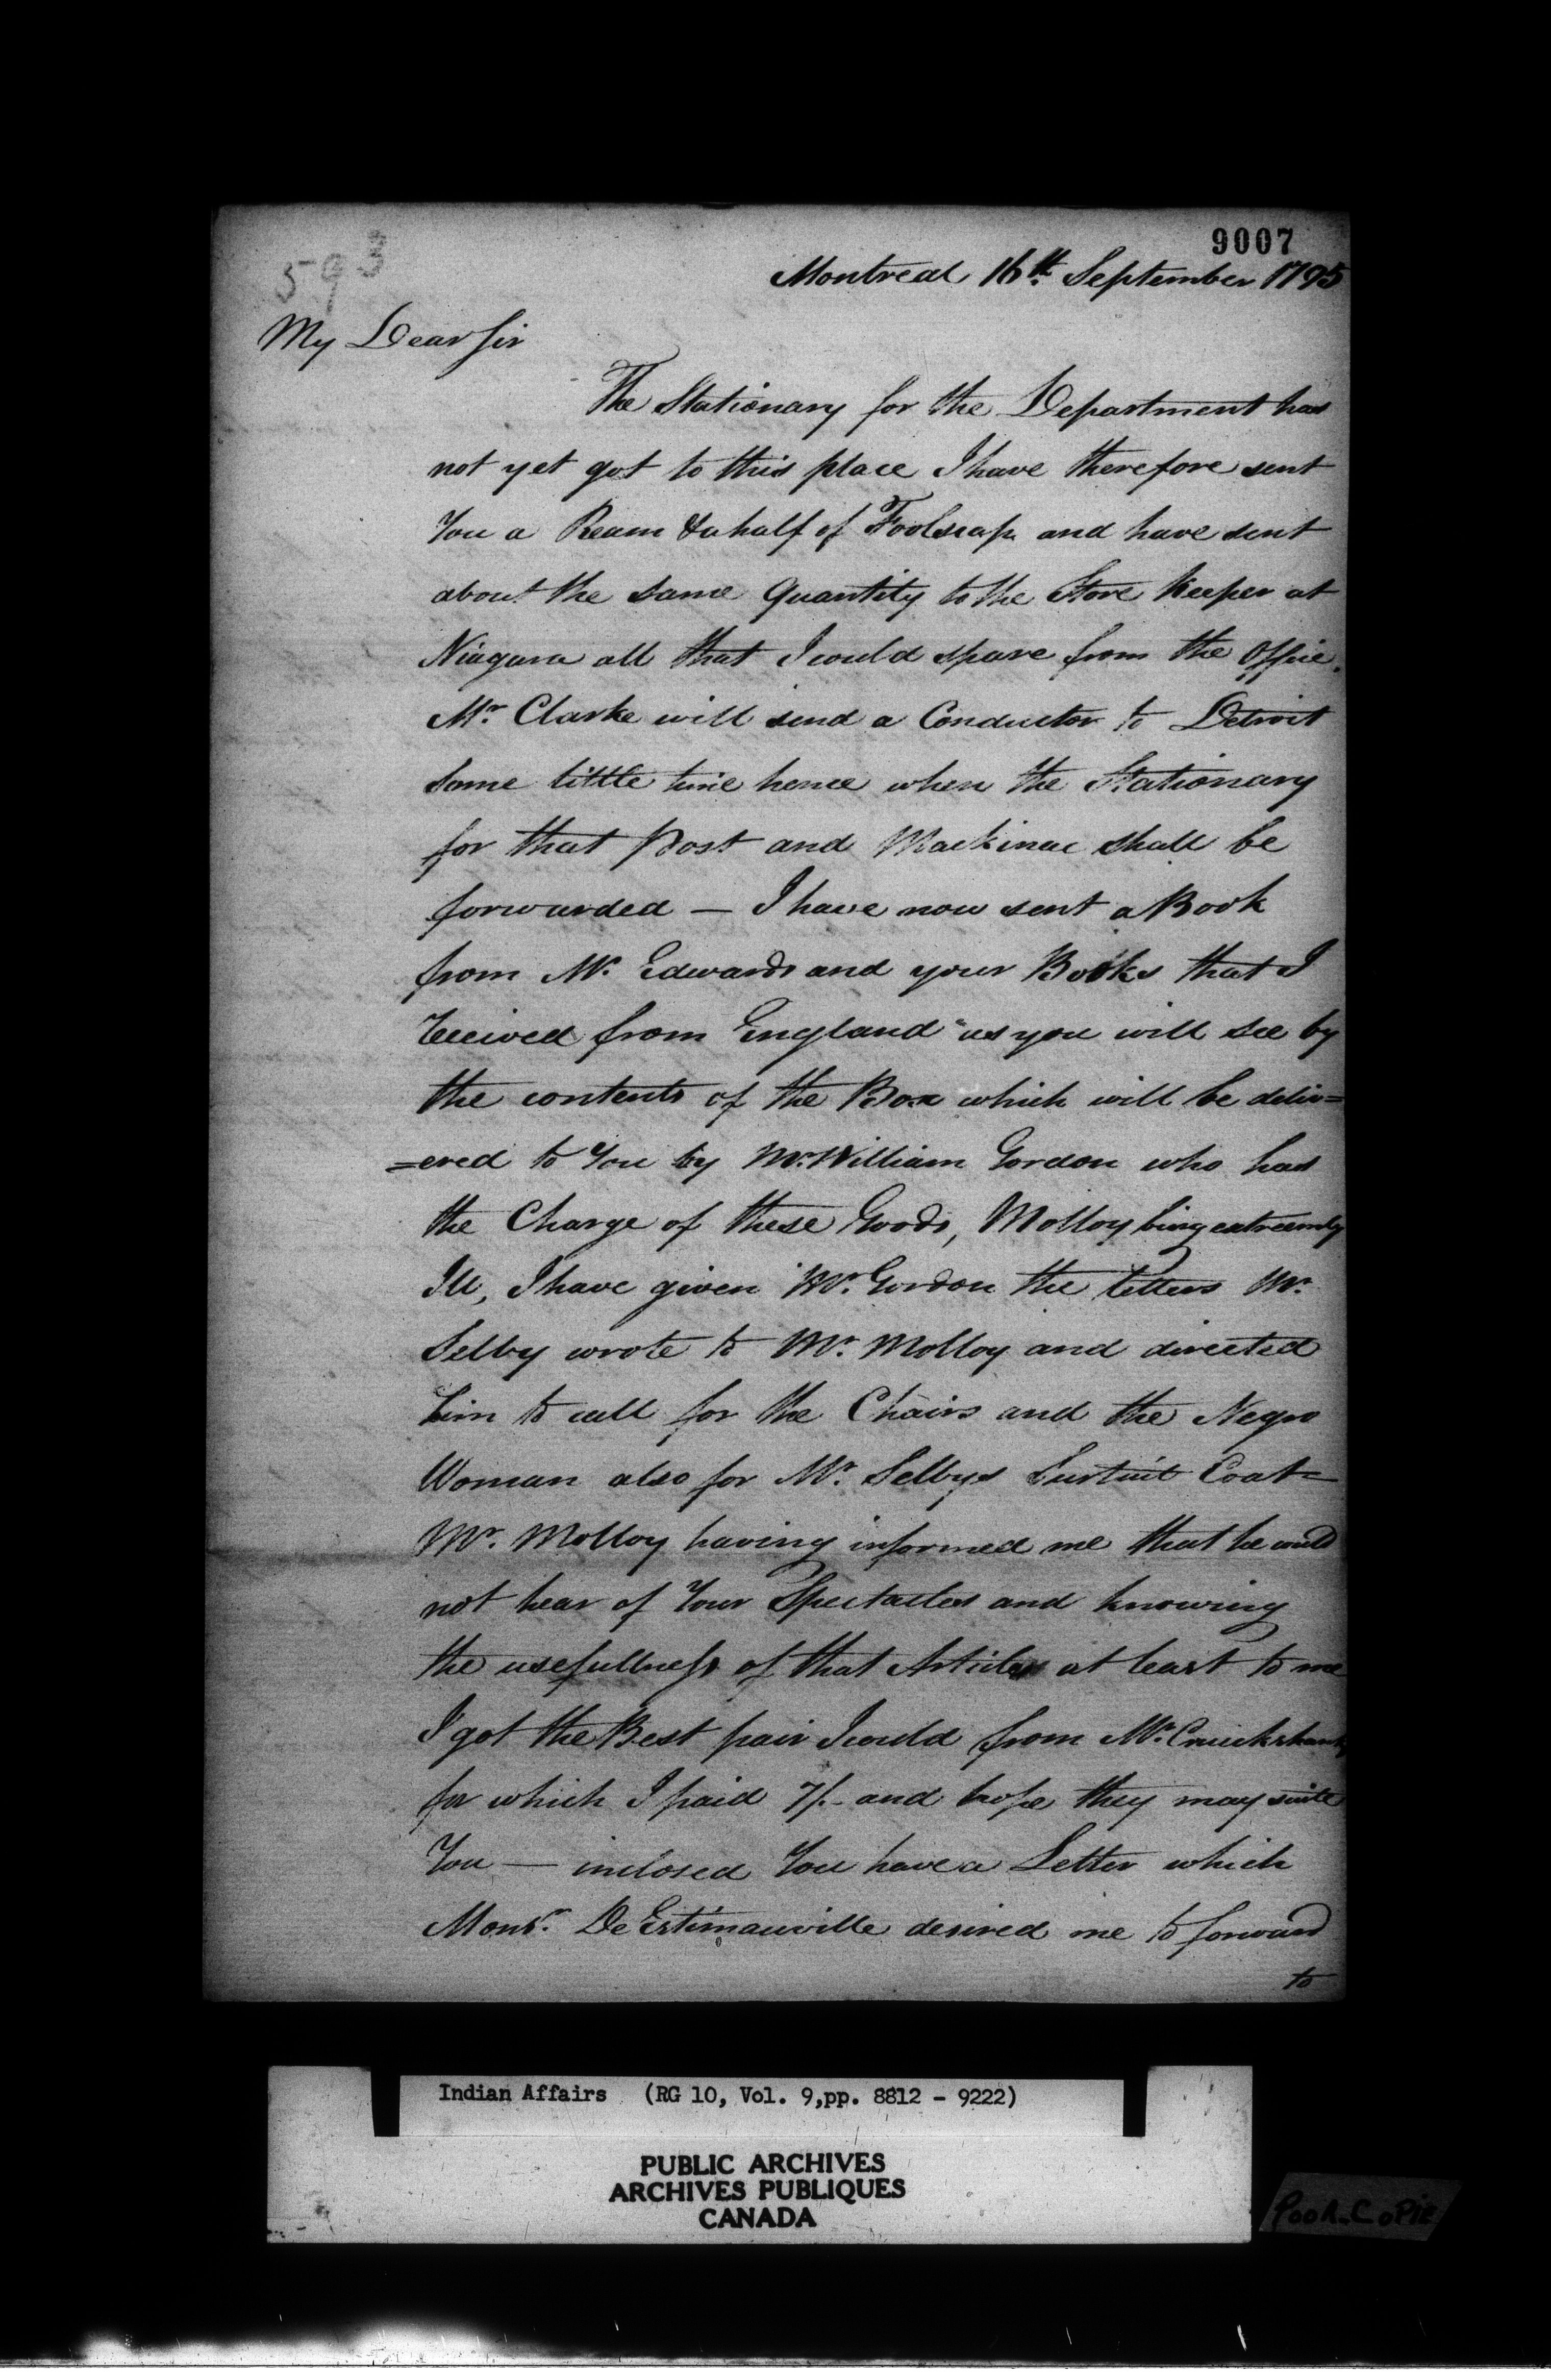 9007
593
Montreal 16th. September 1795
My Dear Sir
The Stationary for the Department has
not yet got to this place I have therefore sent
You a Ream & a half of Foolscap and have sent
about the same Quantity to the Store Keeper at
Niagara all that I could spare from the Office.
Mr. Clarke will send a Conductor to Detroit
some little time hence when the Stationary
for that Post and Mackinac shall be
forwarded — I have now sent a Book
from Mr. Edwards and your Books that I
received from England as you will see by
the contents of the Box which will be deliv=
=ered to You by Mr. William Gordon who has
the Charge of these Goods, Molloy being extreemly
Ill, I have given Mr. Gordon the letters Mr.
Selby wrote to Mr. Molloy and directed
him to call for the Chairs and the Negro
Woman also for Mr. Selbys Surtuit Coat—
Mr. Molloy having informed me that he could
not hear of Your Spectacles and knowing
the usefullness of that Article at least to me
I got the Best pair I could from Mr. Cruickshank
for which I paid 7/- and hope they may suite
You — inclosed You have a Letter which
Monsr. De Estimauville desired me to forward
to
Indian Affairs (RG 10, Vol. 9,pp. 8812 - 9222)
PUBLIC ARCHIVES
ARCHIVES PUBLIQUES
CANADA
POOR_COPIE